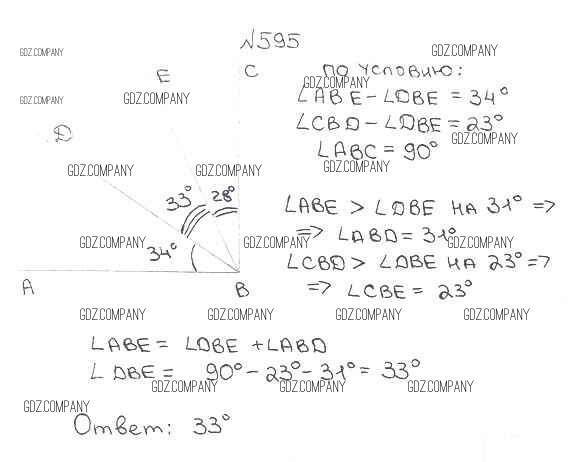 N595
GDZ.COMPANY
GDZ.COMPANY
E
C
по условию:
GDZ.COMPANY
∠ABE - ∠DBE = 34°
GDZ.COMPANY
GDZ.COMPANY
∠CBD - ∠DBE = 23°
D
GDZ.COMPANY
∠ABC = 90°
GDZ.COMPANY
GDZ.COMPANY
GDZ.COMPANY
33°
28°
∠ABE > ∠DBE на 31° =>
=> ∠ABD = 31°
GDZ.COMPANY
GDZ.COMPANY
GDZ.COMPANY
34°
∠CBD > ∠DBE на 23° =>
A
B
=> ∠CBE = 23°
GDZ.COMPANY
GDZ.COMPANY
GDZ.COMPANY
GDZ.COMPANY
∠ABE = ∠DBE + ∠ABD
∠DBE = 90° - 23° - 31° = 33°
GDZ.COMPANY
GDZ.COMPANY
GDZ.COMPANY
GDZ.COMPANY
Ответ: 33°